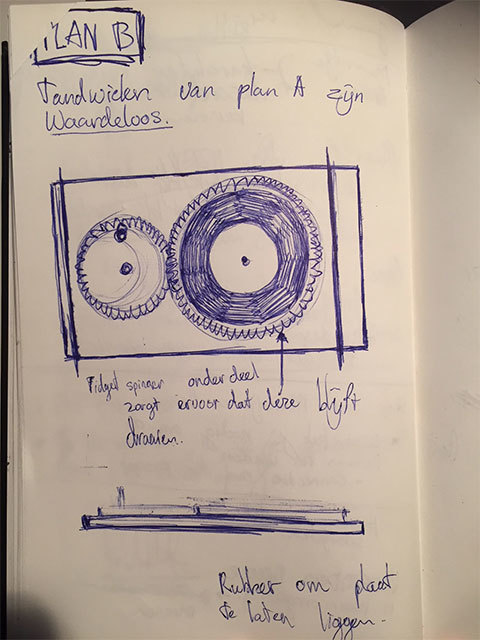 PLAN B
Tandwielen van plan A zijn
Waardeloos.
Fidget spinner onderdeel
zorgt ervoor dat deze blijft
draaien.
Rubber om plaat
te laten liggen.